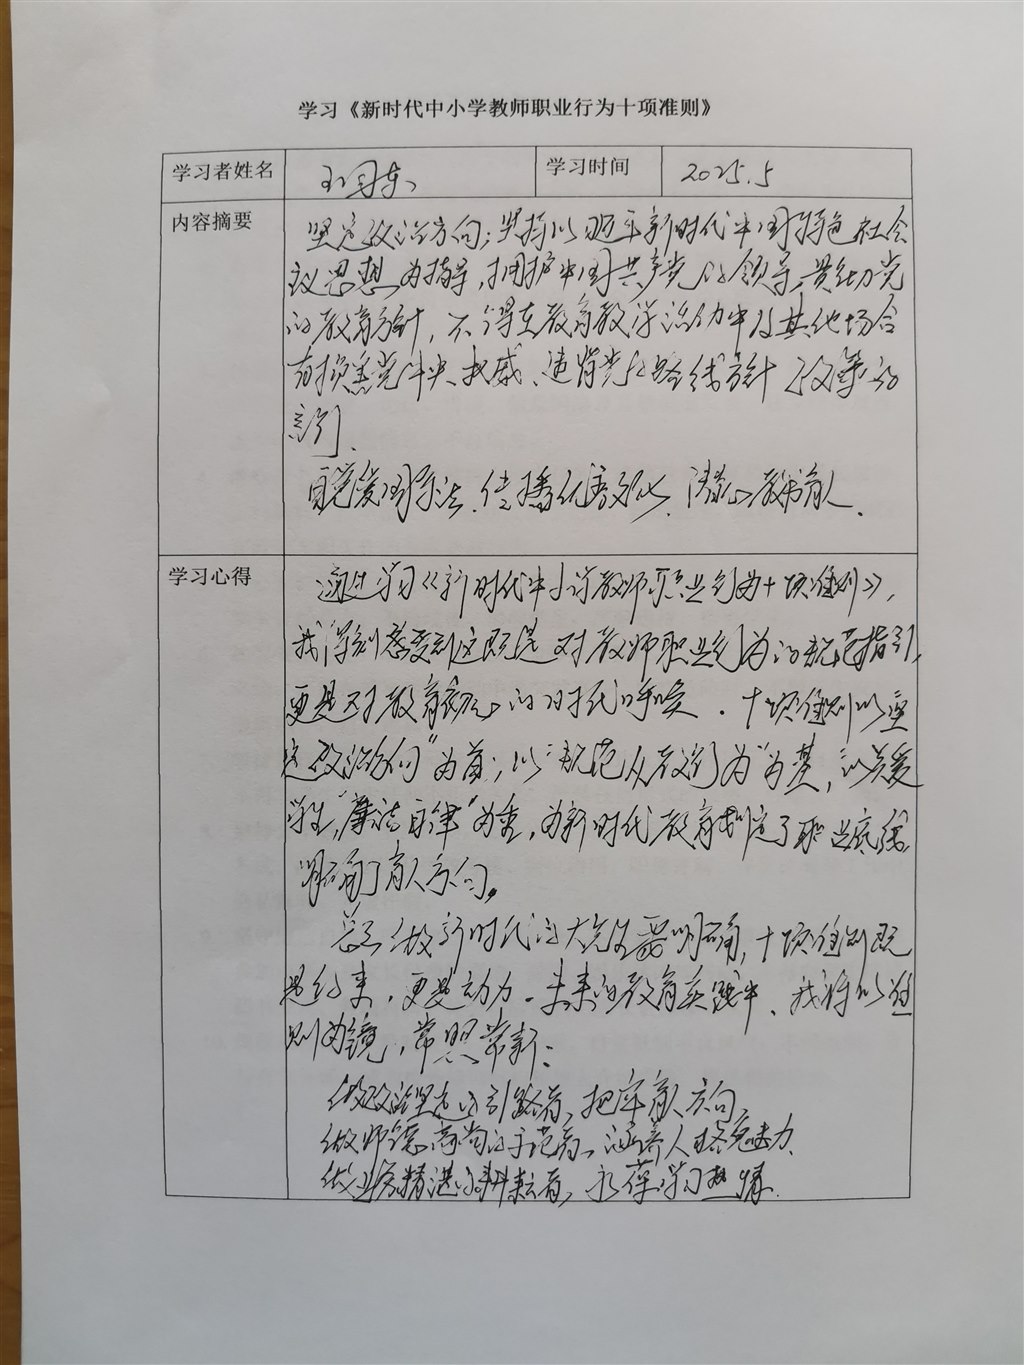 学习《新时代中小学教师职业行为十项准则》
学习者姓名 学习时间 2025.5
内容摘要
坚定政治方向：坚持以习近平新时代中国特色社会
主义思想为指导，拥护中国共产党的领导，贯彻党
的教育方针，不得在教育教学活动中及其他场合
有损害党中央权威、违背党的路线方针政策的
言行.
自觉爱国守法、传播优秀文化、潜心教书育人.
学习心得
通过学习《新时代中小学教师职业行为十项准则》，
我深刻感受到这既是对教师职业行为的规范指引，
更是对教育初心的时代呼唤. 十项准则以"坚
定政治方向"为首；以"规范从教行为"为基，以关爱
学生，"廉洁自律"为重，为新时代教育划定了职业底线，
明确了育人方向。
总之做新时代的大先生要明确，十项准则既
是约束，更是动力。未来的教育实践中、我将以准
则为镜，常照常新：
做政治坚定的引路者，把牢育人方向，
做师德高尚的示范者、涵养人格魅力
做业务精湛的耕耘者，永葆学习热情.